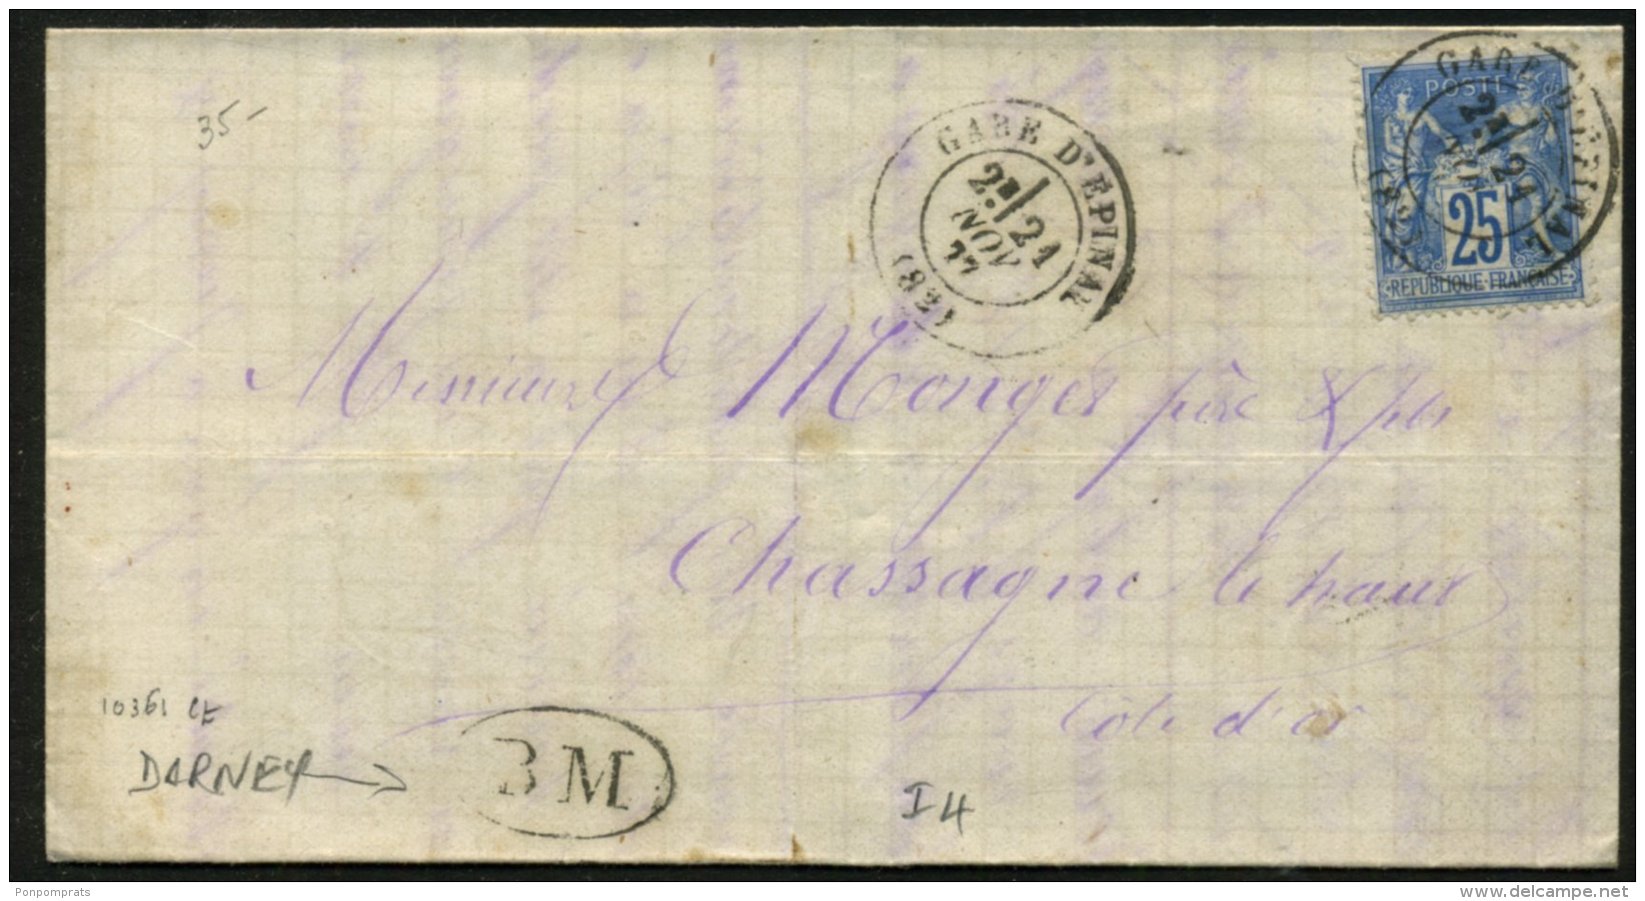 35-
GARE D'EPINAL
2E/ 21
NOV
77
(82)
GARE D'EPINAL
POSTES
2E/ 21
NOV
(82)
25
REPUBLIQUE FRANÇAISE
Messieurs Monges père & fils
Chassagne le haut
Côte d'or
10361 CE
DARNEY
BM
I4
Ponpomprats
www.delcampe.net